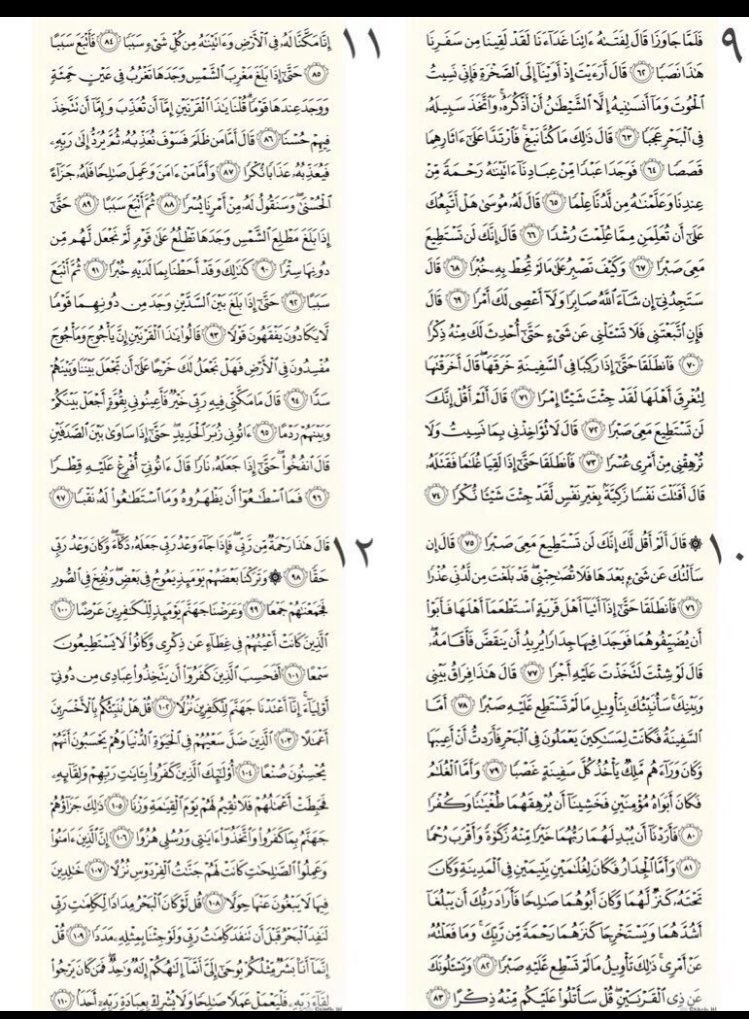 ٩
فَلَمَّا جَاوَزَا قَالَ لِفَتَىٰهُ ءَاتِنَا غَدَآءَنَا لَقَدْ لَقِينَا مِن سَفَرِنَا
هَٰذَا نَصَبًا ٦٢ قَالَ أَرَءَيْتَ إِذْ أَوَيْنَآ إِلَى ٱلصَّخْرَةِ فَإِنِّى نَسِيتُ
ٱلْحُوتَ وَمَآ أَنسَىٰنِيهُ إِلَّا ٱلشَّيْطَٰنُ أَنْ أَذْكُرَهُۥ وَٱتَّخَذَ سَبِيلَهُۥ
فِى ٱلْبَحْرِ عَجَبًا ٦٣ قَالَ ذَٰلِكَ مَا كُنَّا نَبْغِ فَٱرْتَدَّا عَلَىٰٓ ءَاثَارِهِمَا
قَصَصًا ٦٤ فَوَجَدَا عَبْدًا مِّنْ عِبَادِنَآ ءَاتَيْنَٰهُ رَحْمَةً مِّنْ
عِندِنَا وَعَلَّمْنَٰهُ مِن لَّدُنَّا عِلْمًا ٦٥ قَالَ لَهُۥ مُوسَىٰ هَلْ أَتَّبِعُكَ
عَلَىٰٓ أَن تُعَلِّمَنِ مِمَّا عُلِّمْتَ رُشْدًا ٦٦ قَالَ إِنَّكَ لَن تَسْتَطِيعَ
مَعِىَ صَبْرًا ٦٧ وَكَيْفَ تَصْبِرُ عَلَىٰ مَا لَمْ تُحِطْ بِهِۦ خُبْرًا ٦٨ قَالَ
سَتَجِدُنِىٓ إِن شَآءَ ٱللَّهُ صَابِرًا وَلَآ أَعْصِى لَكَ أَمْرًا ٦٩ قَالَ
فَإِنِ ٱتَّبَعْتَنِى فَلَا تَسْـَٔلْنِى عَن شَىْءٍ حَتَّىٰٓ أُحْدِثَ لَكَ مِنْهُ ذِكْرًا
٧٠ فَٱنطَلَقَا حَتَّىٰٓ إِذَا رَكِبَا فِى ٱلسَّفِينَةِ خَرَقَهَا قَالَ أَخَرَقْتَهَا
لِتُغْرِقَ أَهْلَهَا لَقَدْ جِئْتَ شَيْـًٔا إِمْرًا ٧١ قَالَ أَلَمْ أَقُلْ إِنَّكَ
لَن تَسْتَطِيعَ مَعِىَ صَبْرًا ٧٢ قَالَ لَا تُؤَاخِذْنِى بِمَا نَسِيتُ وَلَا
تُرْهِقْنِى مِنْ أَمْرِى عُسْرًا ٧٣ فَٱنطَلَقَا حَتَّىٰٓ إِذَا لَقِيَا غُلَٰمًا فَقَتَلَهُۥ
قَالَ أَقَتَلْتَ نَفْسًا زَكِيَّةًۢ بِغَيْرِ نَفْسٍ لَّقَدْ جِئْتَ شَيْـًٔا نُّكْرًا ٧٤
١٠
۞ قَالَ أَلَمْ أَقُل لَّكَ إِنَّكَ لَن تَسْتَطِيعَ مَعِىَ صَبْرًا ٧٥ قَالَ إِن
سَأَلْتُكَ عَن شَىْءٍۭ بَعْدَهَا فَلَا تُصَٰحِبْنِى قَدْ بَلَغْتَ مِن لَّدُنِّى عُذْرًا
٧٦ فَٱنطَلَقَا حَتَّىٰٓ إِذَآ أَتَيَآ أَهْلَ قَرْيَةٍ ٱسْتَطْعَمَآ أَهْلَهَا فَأَبَوْا۟
أَن يُضَيِّفُوهُمَا فَوَجَدَا فِيهَا جِدَارًا يُرِيدُ أَن يَنقَضَّ فَأَقَامَهُۥ
قَالَ لَوْ شِئْتَ لَتَّخَذْتَ عَلَيْهِ أَجْرًا ٧٧ قَالَ هَٰذَا فِرَاقُ بَيْنِى
وَبَيْنِكَ سَأُنَبِّئُكَ بِتَأْوِيلِ مَا لَمْ تَسْتَطِع عَّلَيْهِ صَبْرًا ٧٨ أَمَّا
ٱلسَّفِينَةُ فَكَانَتْ لِمَسَٰكِينَ يَعْمَلُونَ فِى ٱلْبَحْرِ فَأَرَدتُّ أَنْ أَعِيبَهَا
وَكَانَ وَرَآءَهُم مَّلِكٌ يَأْخُذُ كُلَّ سَفِينَةٍ غَصْبًا ٧٩ وَأَمَّا ٱلْغُلَٰمُ
فَكَانَ أَبَوَاهُ مُؤْمِنَيْنِ فَخَشِينَآ أَن يُرْهِقَهُمَا طُغْيَٰنًا وَكُفْرًا
٨٠ فَأَرَدْنَآ أَن يُبْدِلَهُمَا رَبُّهُمَا خَيْرًا مِّنْهُ زَكَوٰةً وَأَقْرَبَ رُحْمًا
٨١ وَأَمَّا ٱلْجِدَارُ فَكَانَ لِغُلَٰمَيْنِ يَتِيمَيْنِ فِى ٱلْمَدِينَةِ وَكَانَ
تَحْتَهُۥ كَنزٌ لَّهُمَا وَكَانَ أَبُوهُمَا صَٰلِحًا فَأَرَادَ رَبُّكَ أَن يَبْلُغَآ
أَشُدَّهُمَا وَيَسْتَخْرِجَا كَنزَهُمَا رَحْمَةً مِّن رَّبِّكَ وَمَا فَعَلْتُهُۥ
عَنْ أَمْرِى ذَٰلِكَ تَأْوِيلُ مَا لَمْ تَسْطِع عَّلَيْهِ صَبْرًا ٨٢ وَيَسْـَٔلُونَكَ
عَن ذِى ٱلْقَرْنَيْنِ قُلْ سَأَتْلُوا۟ عَلَيْكُم مِّنْهُ ذِكْرًا ٨٣
١١
إِنَّا مَكَّنَّا لَهُۥ فِى ٱلْأَرْضِ وَءَاتَيْنَٰهُ مِن كُلِّ شَىْءٍ سَبَبًا ٨٤ فَأَتْبَعَ سَبَبًا
٨٥ حَتَّىٰٓ إِذَا بَلَغَ مَغْرِبَ ٱلشَّمْسِ وَجَدَهَا تَغْرُبُ فِى عَيْنٍ حَمِئَةٍ
وَوَجَدَ عِندَهَا قَوْمًا قُلْنَا يَٰذَا ٱلْقَرْنَيْنِ إِمَّآ أَن تُعَذِّبَ وَإِمَّآ أَن تَتَّخِذَ
فِيهِمْ حُسْنًا ٨٦ قَالَ أَمَّا مَن ظَلَمَ فَسَوْفَ نُعَذِّبُهُۥ ثُمَّ يُرَدُّ إِلَىٰ رَبِّهِۦ
فَيُعَذِّبُهُۥ عَذَابًا نُّكْرًا ٨٧ وَأَمَّا مَنْ ءَامَنَ وَعَمِلَ صَٰلِحًا فَلَهُۥ جَزَآءً
ٱلْحُسْنَىٰ وَسَنَقُولُ لَهُۥ مِنْ أَمْرِنَا يُسْرًا ٨٨ ثُمَّ أَتْبَعَ سَبَبًا ٨٩ حَتَّىٰٓ
إِذَا بَلَغَ مَطْلِعَ ٱلشَّمْسِ وَجَدَهَا تَطْلُعُ عَلَىٰ قَوْمٍ لَّمْ نَجْعَل لَّهُم مِّن
دُونِهَا سِتْرًا ٩٠ كَذَٰلِكَ وَقَدْ أَحَطْنَا بِمَا لَدَيْهِ خُبْرًا ٩١ ثُمَّ أَتْبَعَ
سَبَبًا ٩٢ حَتَّىٰٓ إِذَا بَلَغَ بَيْنَ ٱلسَّدَّيْنِ وَجَدَ مِن دُونِهِمَا قَوْمًا
لَّا يَكَادُونَ يَفْقَهُونَ قَوْلًا ٩٣ قَالُوا۟ يَٰذَا ٱلْقَرْنَيْنِ إِنَّ يَأْجُوجَ وَمَأْجُوجَ
مُفْسِدُونَ فِى ٱلْأَرْضِ فَهَلْ نَجْعَلُ لَكَ خَرْجًا عَلَىٰٓ أَن تَجْعَلَ بَيْنَنَا وَبَيْنَهُمْ
سَدًّا ٩٤ قَالَ مَا مَكَّنِّى فِيهِ رَبِّى خَيْرٌ فَأَعِينُونِى بِقُوَّةٍ أَجْعَلْ بَيْنَكُمْ
وَبَيْنَهُمْ رَدْمًا ٩٥ ءَاتُونِى زُبَرَ ٱلْحَدِيدِ حَتَّىٰٓ إِذَا سَاوَىٰ بَيْنَ ٱلصَّدَفَيْنِ
قَالَ ٱنفُخُوا۟ حَتَّىٰٓ إِذَا جَعَلَهُۥ نَارًا قَالَ ءَاتُونِىٓ أُفْرِغْ عَلَيْهِ قِطْرًا
٩٦ فَمَا ٱسْطَٰعُوٓا۟ أَن يَظْهَرُوهُ وَمَا ٱسْتَطَٰعُوا۟ لَهُۥ نَقْبًا ٩٧
١٢
قَالَ هَٰذَا رَحْمَةٌ مِّن رَّبِّى فَإِذَا جَآءَ وَعْدُ رَبِّى جَعَلَهُۥ دَكَّآءَ وَكَانَ وَعْدُ رَبِّى
حَقًّا ٩٨ ۞ وَتَرَكْنَا بَعْضَهُمْ يَوْمَئِذٍ يَمُوجُ فِى بَعْضٍ وَنُفِخَ فِى ٱلصُّورِ
فَجَمَعْنَٰهُمْ جَمْعًا ٩٩ وَعَرَضْنَا جَهَنَّمَ يَوْمَئِذٍ لِّلْكَٰفِرِينَ عَرْضًا ١٠٠
ٱلَّذِينَ كَانَتْ أَعْيُنُهُمْ فِى غِطَآءٍ عَن ذِكْرِى وَكَانُوا۟ لَا يَسْتَطِيعُونَ
سَمْعًا ١٠١ أَفَحَسِبَ ٱلَّذِينَ كَفَرُوٓا۟ أَن يَتَّخِذُوا۟ عِبَادِى مِن دُونِىٓ
أَوْلِيَآءَ إِنَّآ أَعْتَدْنَا جَهَنَّمَ لِلْكَٰفِرِينَ نُزُلًا ١٠٢ قُلْ هَلْ نُنَبِّئُكُم بِٱلْأَخْسَرِينَ
أَعْمَٰلًا ١٠٣ ٱلَّذِينَ ضَلَّ سَعْيُهُمْ فِى ٱلْحَيَوٰةِ ٱلدُّنْيَا وَهُمْ يَحْسَبُونَ أَنَّهُمْ
يُحْسِنُونَ صُنْعًا ١٠٤ أُو۟لَٰٓئِكَ ٱلَّذِينَ كَفَرُوا۟ بِـَٔايَٰتِ رَبِّهِمْ وَلِقَآئِهِۦ
فَحَبِطَتْ أَعْمَٰلُهُمْ فَلَا نُقِيمُ لَهُمْ يَوْمَ ٱلْقِيَٰمَةِ وَزْنًا ١٠٥ ذَٰلِكَ جَزَآؤُهُمْ
جَهَنَّمُ بِمَا كَفَرُوا۟ وَٱتَّخَذُوٓا۟ ءَايَٰتِى وَرُسُلِى هُزُوًا ١٠٦ إِنَّ ٱلَّذِينَ ءَامَنُوا۟
وَعَمِلُوا۟ ٱلصَّٰلِحَٰتِ كَانَتْ لَهُمْ جَنَّٰتُ ٱلْفِرْدَوْسِ نُزُلًا ١٠٧ خَٰلِدِينَ
فِيهَا لَا يَبْغُونَ عَنْهَا حِوَلًا ١٠٨ قُل لَّوْ كَانَ ٱلْبَحْرُ مِدَادًا لِّكَلِمَٰتِ رَبِّى
لَنَفِدَ ٱلْبَحْرُ قَبْلَ أَن تَنفَدَ كَلِمَٰتُ رَبِّى وَلَوْ جِئْنَا بِمِثْلِهِۦ مَدَدًا ١٠٩ قُلْ
إِنَّمَآ أَنَا۠ بَشَرٌ مِّثْلُكُمْ يُوحَىٰٓ إِلَىَّ أَنَّمَآ إِلَٰهُكُمْ إِلَٰهٌ وَٰحِدٌ فَمَن كَانَ يَرْجُوا۟
لِقَآءَ رَبِّهِۦ فَلْيَعْمَلْ عَمَلًا صَٰلِحًا وَلَا يُشْرِكْ بِعِبَادَةِ رَبِّهِۦٓ أَحَدًۢا ١١٠